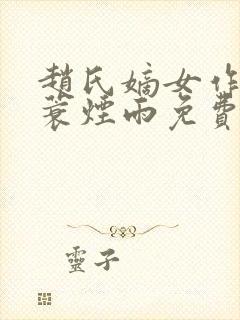 趙氏嫡女作
蓑煙雨免費
靈子